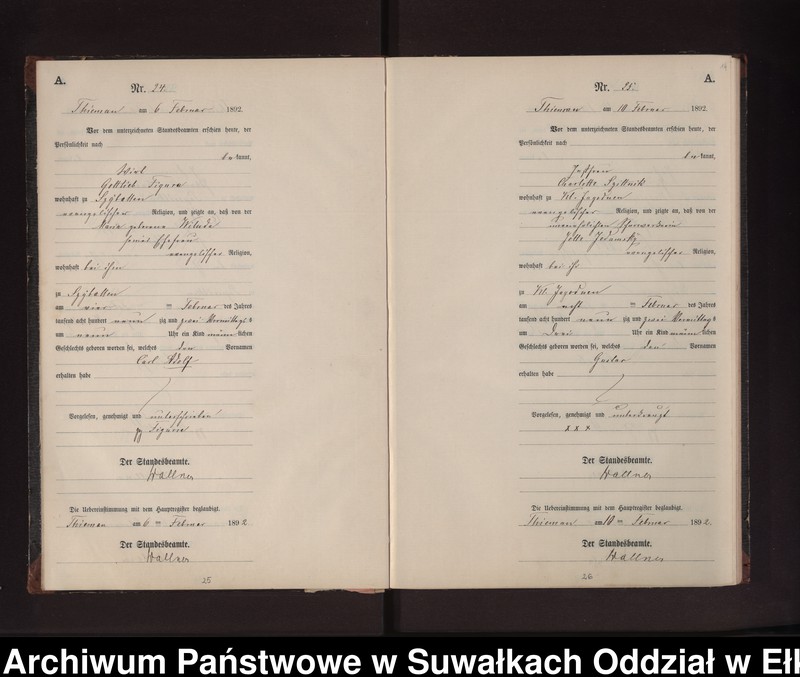 A.
Nr. 24.
Thieman am 6 Februar 1892.
Vor dem unterzeichneten Standesbeamten erschien heute, der
Persönlichkeit nach
be kannt,
Wirt
Gottlieb Figura
wohnhaft zu Szyballen
evangelischer Religion, und zeigte an, daß von der
Marie geborene
seiner Ehefrau
evangelischer Religion,
wohnhaft bei ihm
zu Szyballen
am vier ten Februar des Jahres
tausend acht hundert neun zig und zwei Vormittags
um neun Uhr ein Kind männlichen
Geschlechts geboren worden sei, welches den Vornamen
Carl Adolf
erhalten habe
Vorgelesen, genehmigt und unterschrieben
Figura
Der Standesbeamte.
Hallner
Die Uebereinstimmung mit dem Hauptregister beglaubigt.
Thieman am 6 ten Februar 1892.
Der Standesbeamte.
Hallner
25
A.
Nr. 25.
Thieman am 10 Februar 1892.
Vor dem unterzeichneten Standesbeamten erschien heute, der
Persönlichkeit nach
be kannt,
Charlotte
wohnhaft zu Kl. Jeziornen
evangelischer Religion, und zeigte an, daß von der
unverehelichten
evangelischer Religion,
wohnhaft bei ihr
zu Kl. Jeziornen
am acht ten Februar des Jahres
tausend acht hundert neun zig und zwei Vormittags
um drei Uhr ein Kind männlichen
Geschlechts geboren worden sei, welches den Vornamen
Gustav
erhalten habe
Vorgelesen, genehmigt und unterkreuzt
x x x
Der Standesbeamte.
Hallner
Die Uebereinstimmung mit dem Hauptregister beglaubigt.
Thieman am 10 ten Februar 1892.
Der Standesbeamte.
Hallner
26
Archiwum Państwowe w Suwałkach Oddział w Ełk